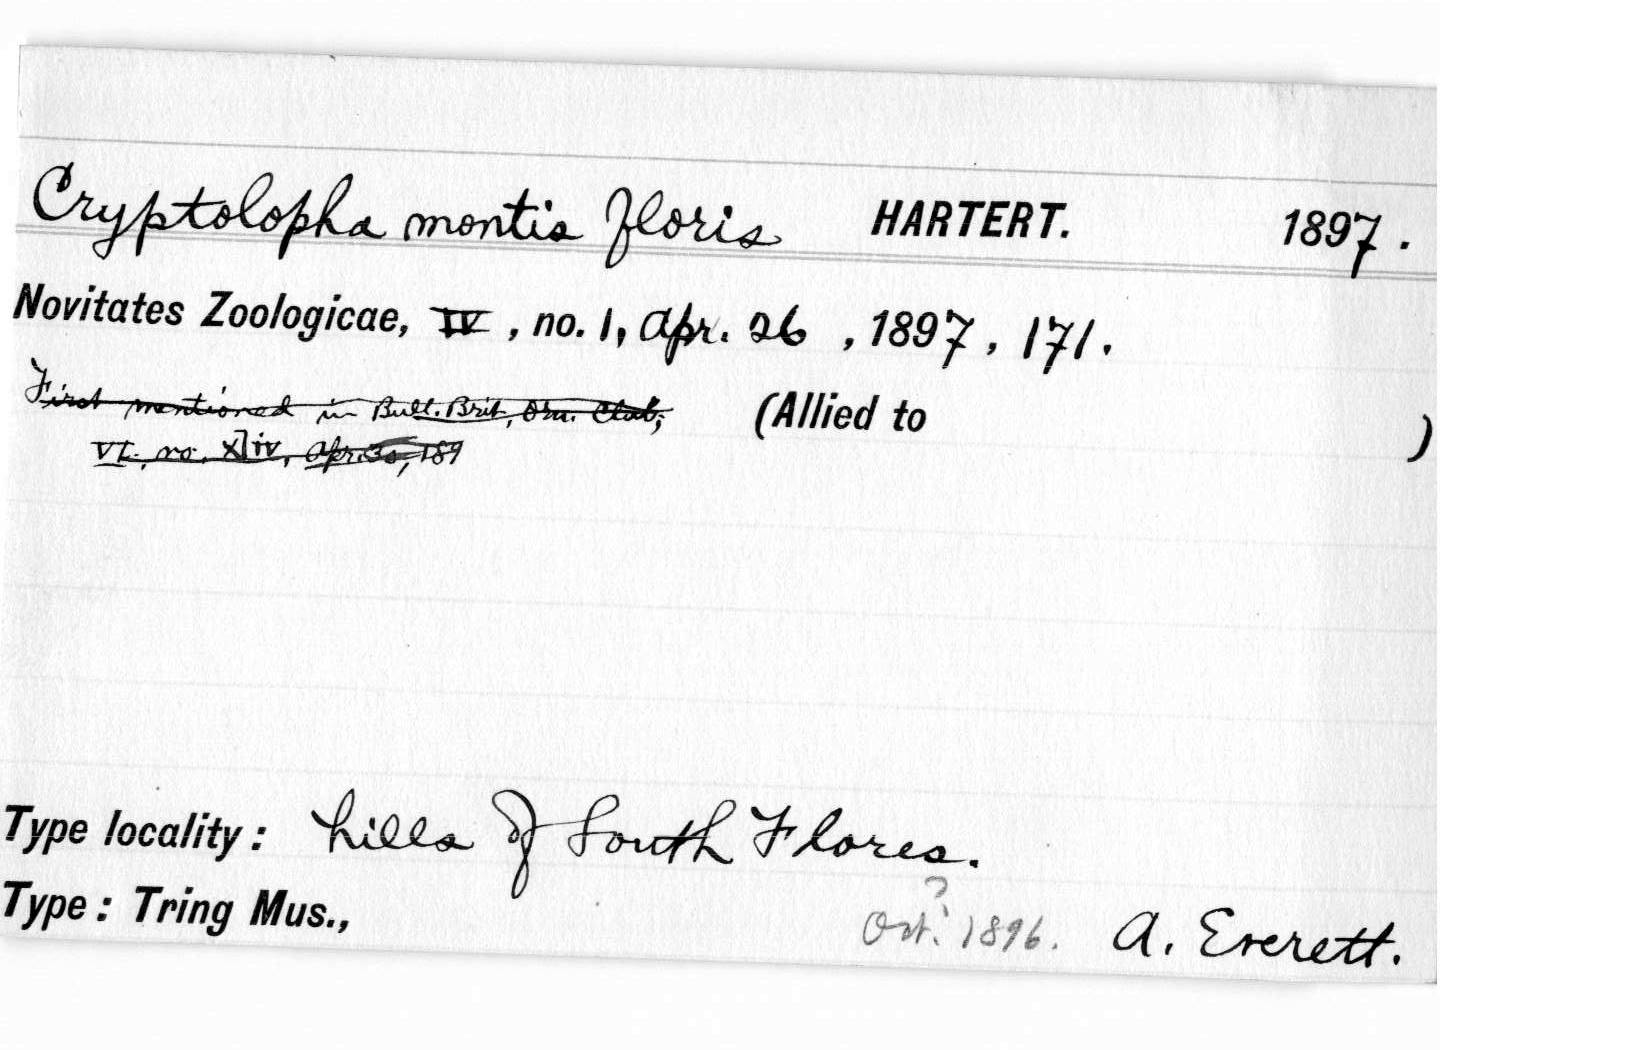 Cryptolopha montis floris HARTERT. 1897.
Novitates Zoologicae, IV, no. 1, Apr. 26, 1897, 171.
First mentioned in Bull. Brit. Orn. Club, (Allied to )
VI, no. xliv, Apr. 30, 189
Type locality: hills of South Flores.
?
Type: Tring Mus., Oct. 1896. A. Everett.